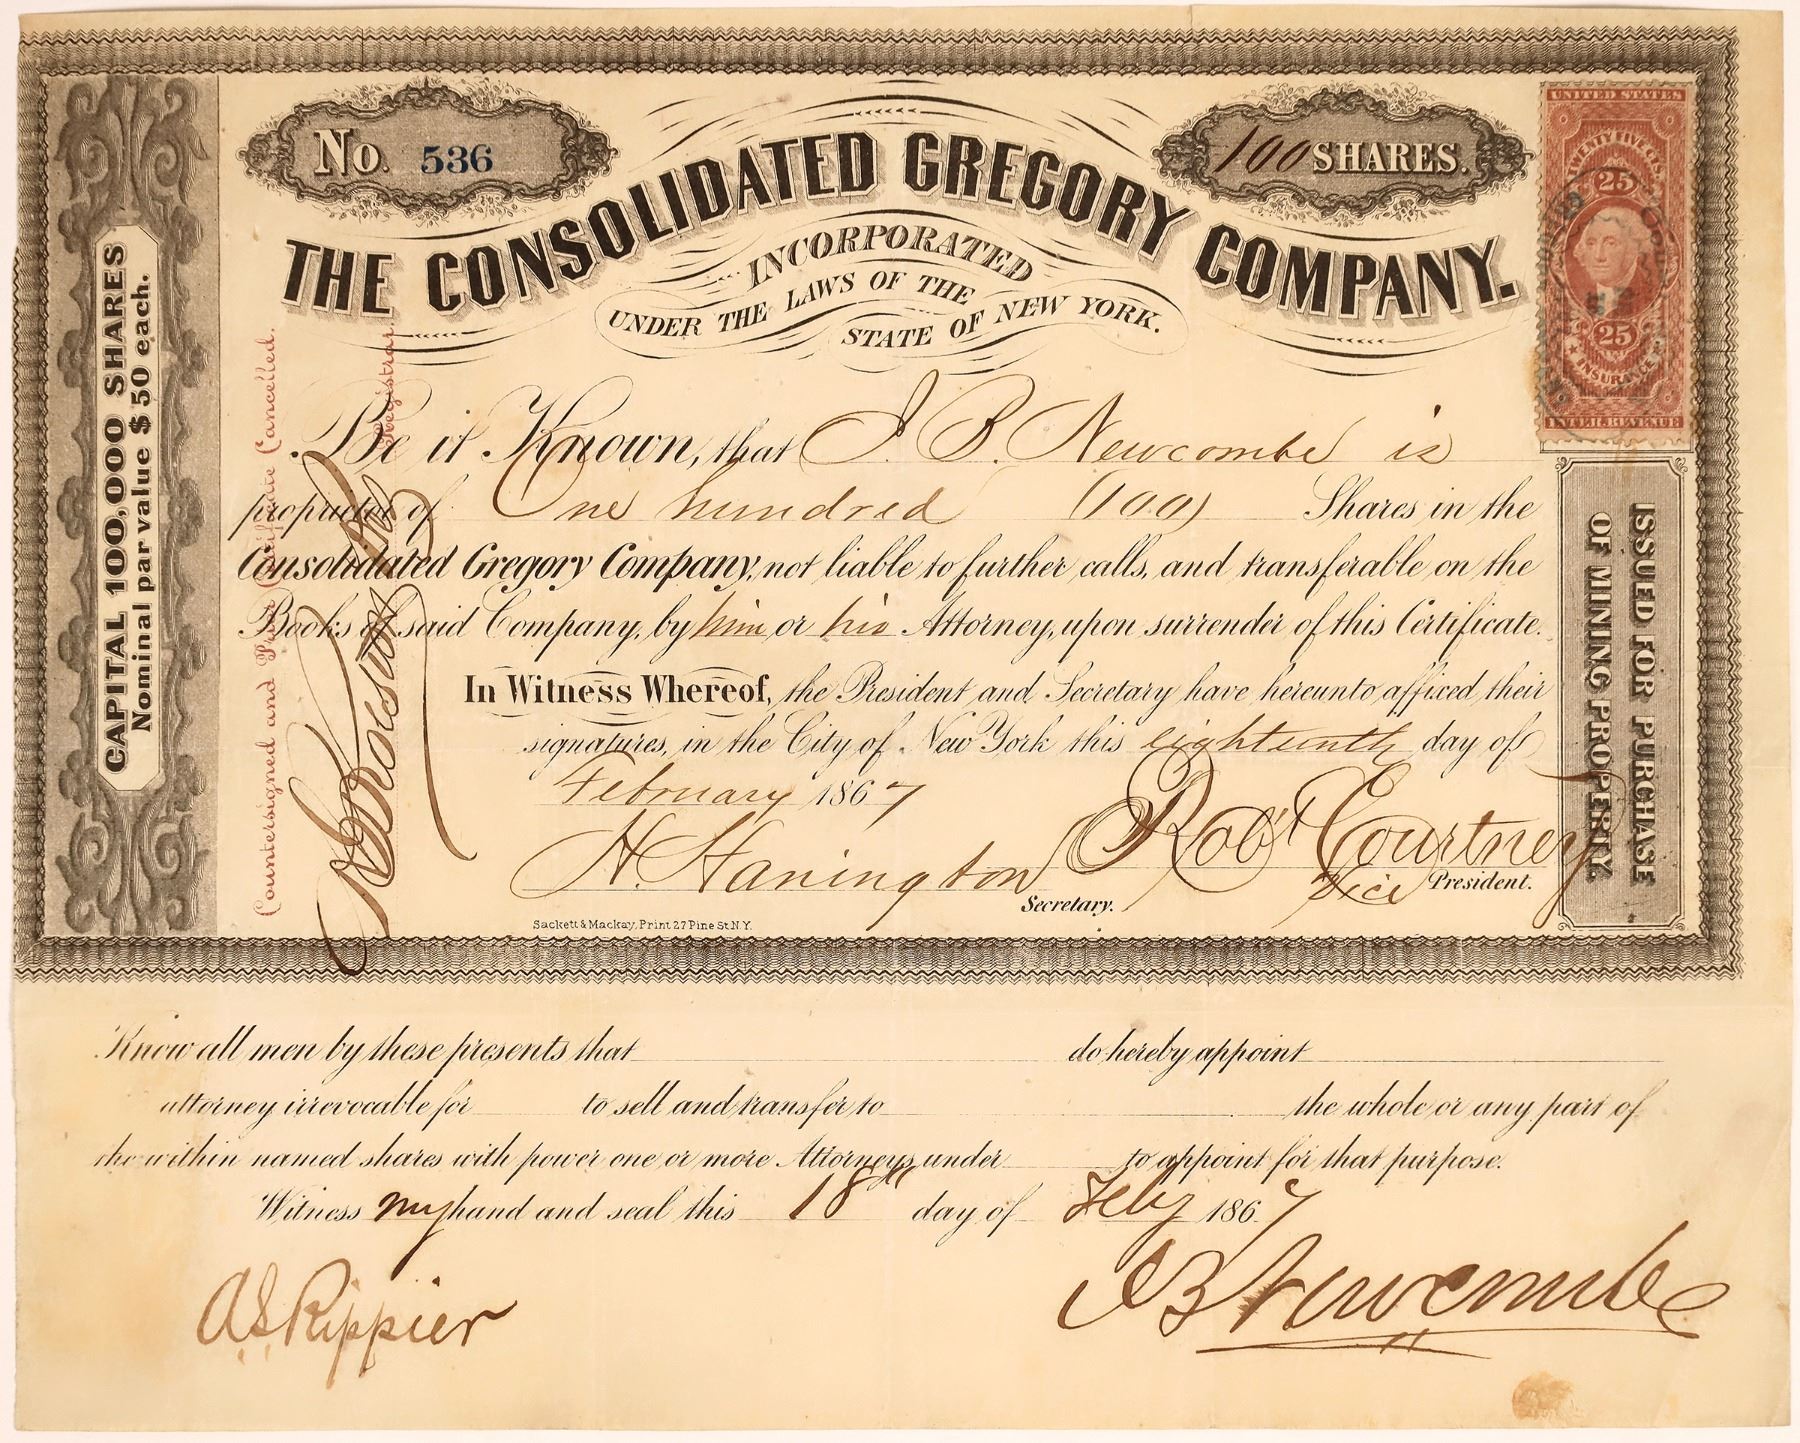 No. 536
100 SHARES.
THE CONSOLIDATED GREGORY COMPANY.
INCORPORATED
UNDER THE LAWS OF THE
STATE OF NEW YORK.
UNITED STATES
TWENTY FIVE CTS.
25
25
INSURANCE
INTER. REVENUE
CAPITAL 100,000 SHARES
Nominal par value $50 each.
Countersigned and Cancelled.
Registrar.
Be it Known, that J. B. Newcombe is
proprietor of One hundred (100) Shares in the
Consolidated Gregory Company, not liable to further calls, and transferable on the
Books of said Company, by him or his Attorney, upon surrender of this Certificate.
In Witness Whereof, the President and Secretary have hereunto affixed their
signatures, in the City of New York this eighteenth day of
February 1867
H. Hanington Robt Courtney
Secretary. Vice President.
Sackett & Mackay, Print 27 Pine St N.Y.
ISSUED FOR PURCHASE
OF MINING PROPERTY.
Know all men by these presents that do hereby appoint
attorney irrevocable for to sell and transfer to the whole or any part of
the within named shares with power one or more Attorneys under to appoint for that purpose.
Witness my hand and seal this 18th day of Feby 1867
A S Rippier J B Newcombe